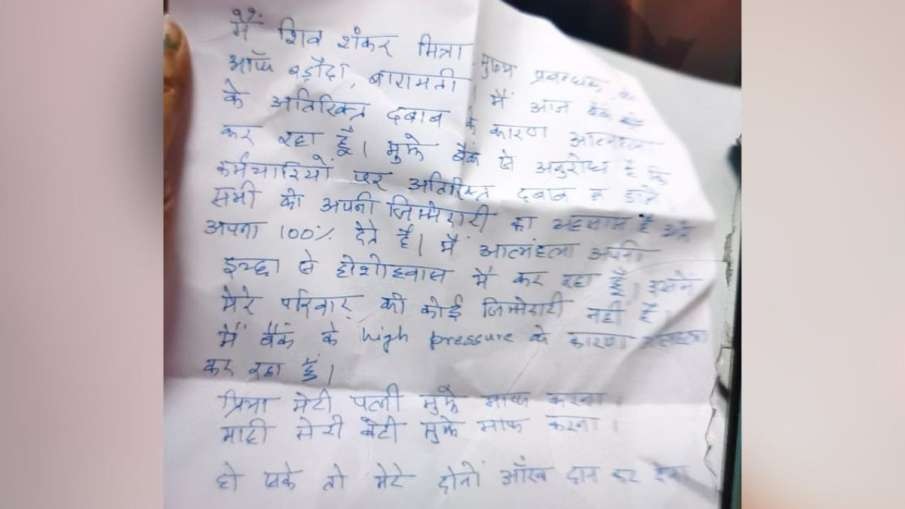 मैं शिव शंकर मित्रा मुख्य प्रबन्धक,
ऑफ बड़ौदा, बारामती मैं आज बैंक
के अतिरिक्त दबाव के कारण
कर रहा हूँ। मुझे बैंक से अनुरोध है कि
कर्मचारियों पर अतिरिक्त दबाव न डाले
सभी को अपनी जिम्मेदारी का अहसास है और
अपना 100% देते हैं। मैं आत्महत्या अपनी
इच्छा से होशोहवास में कर रहा हूँ, इसमें
मेरे परिवार की कोई जिम्मेदारी नहीं है।
मैं बैंक के high pressure के कारण
कर रहा हूँ।
प्रिया मेरी पत्नी मुझे माफ करना।
माही मेरी बेटी मुझे माफ करना।
हो सके तो मेरे दोनों आँख दान कर